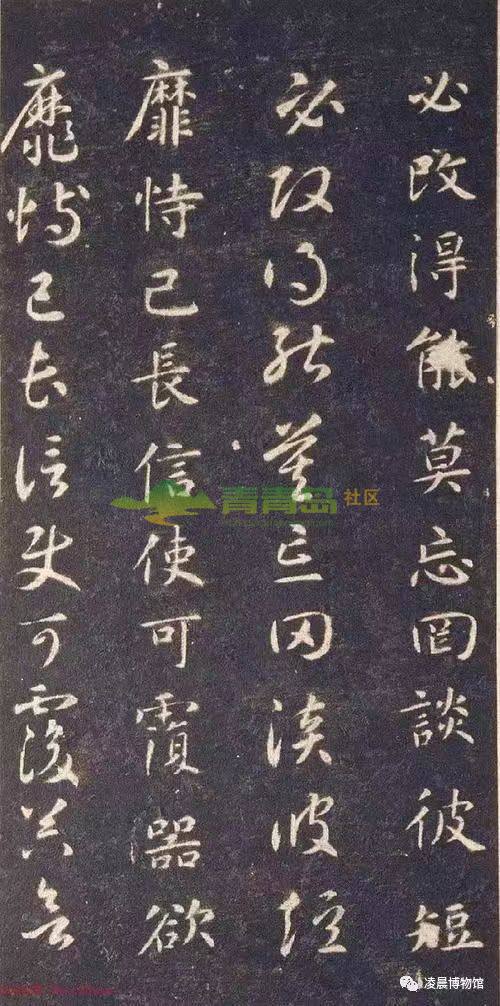 必改得能莫忘罔談彼短
必改得能莫忘罔談彼短
靡恃己長信使可覆器欲
靡恃己長信使可覆器欲
青青岛社区
凌晨博物馆